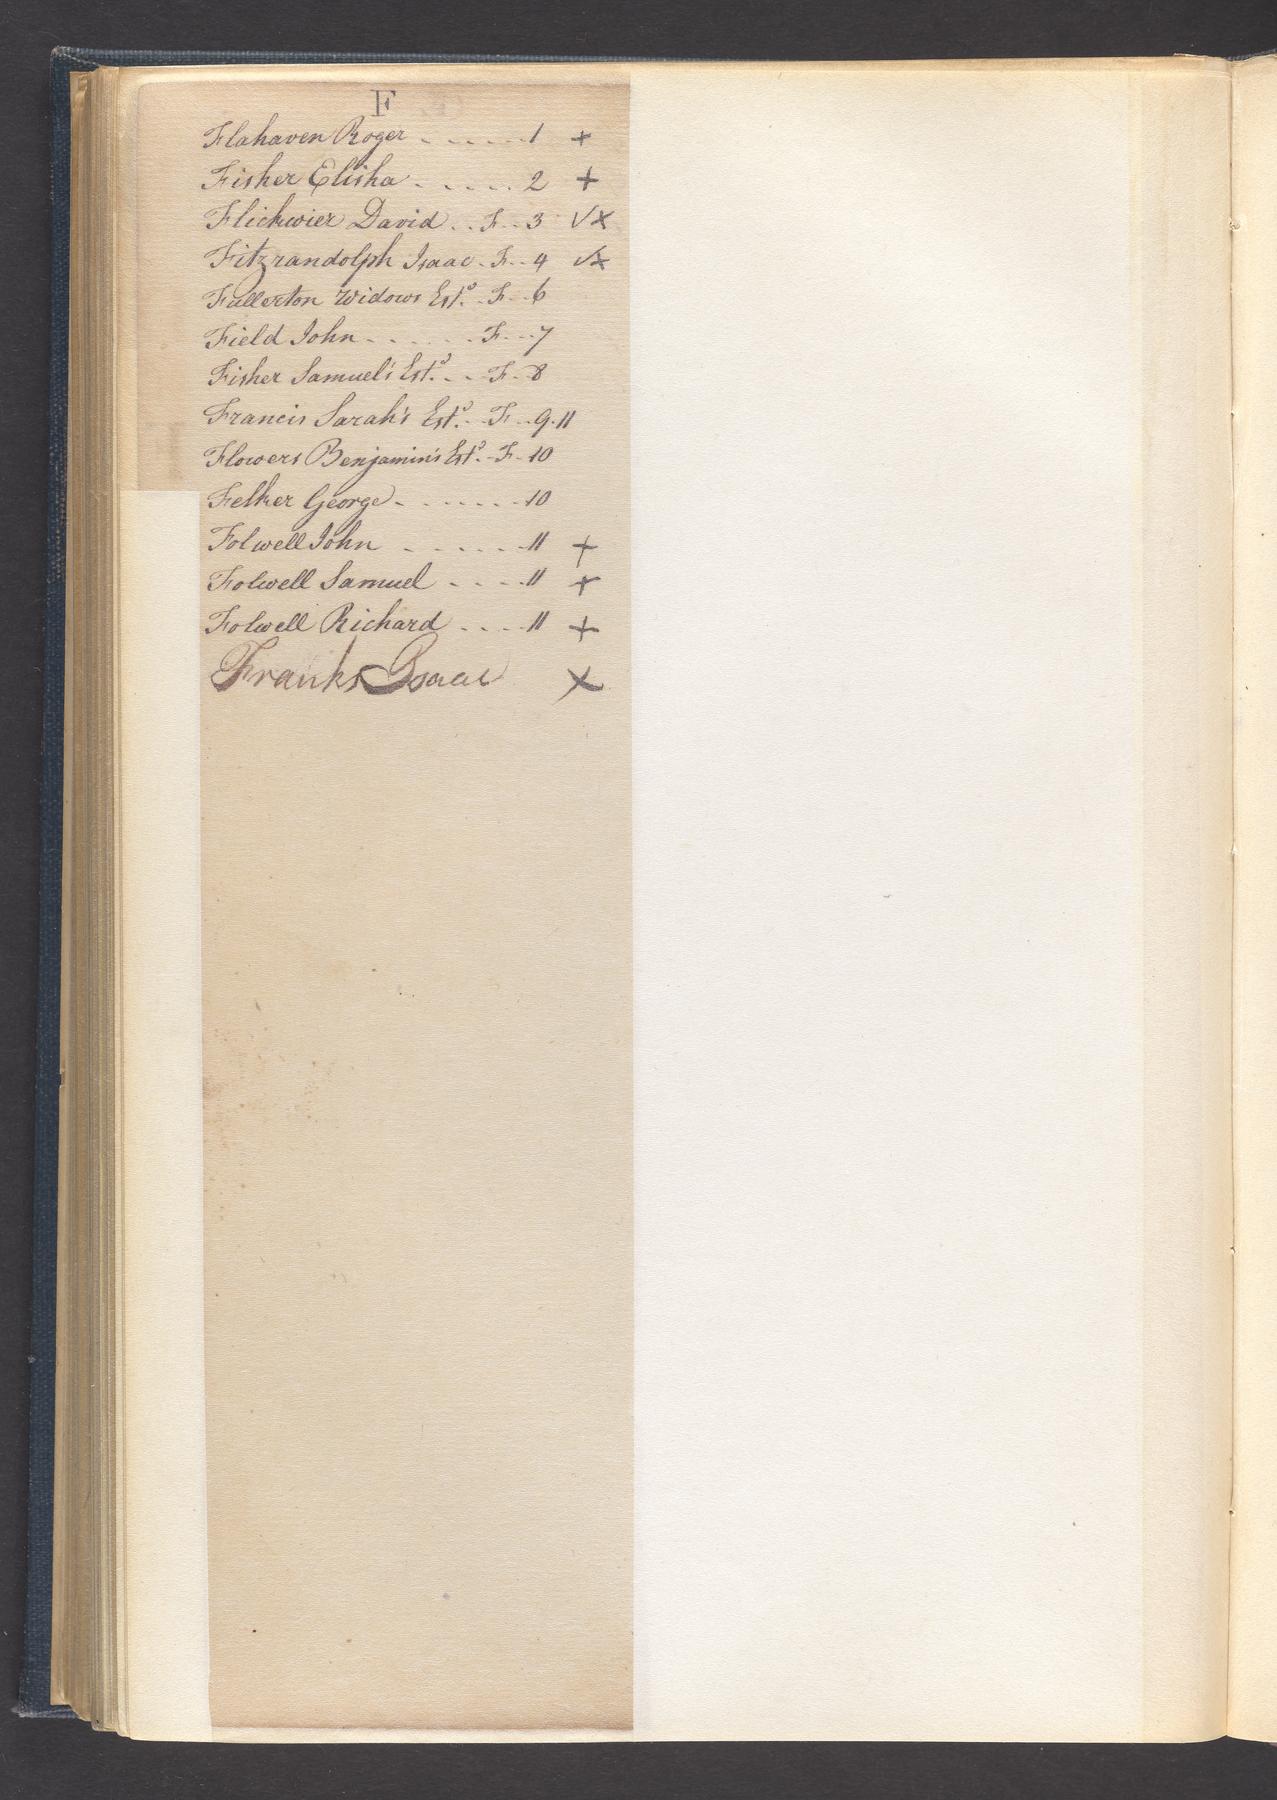 F
Flahaven Roger - - - - - - 1 +
Fisher Elisha - - - - - 2 +
Flickwier David - - F - - 3 √ x
Fitzrandolph Isaac - F - - 4 √ x
Fullerton Widows Est.º - F - - 6
Field John - - - - - - F - - - 7
Fisher Samuel's Est.º - - F - 8
Francis Sarah's Est.º - - F - - 9.11
Flowers Benjamin's Est.º - F - 10
Felker George - - - - - - - 10
Folwell John - - - - - - 11 +
Folwell Samuel - - - - 11 +
Folwell Richard - - - - 11 +
Franks Isaac x